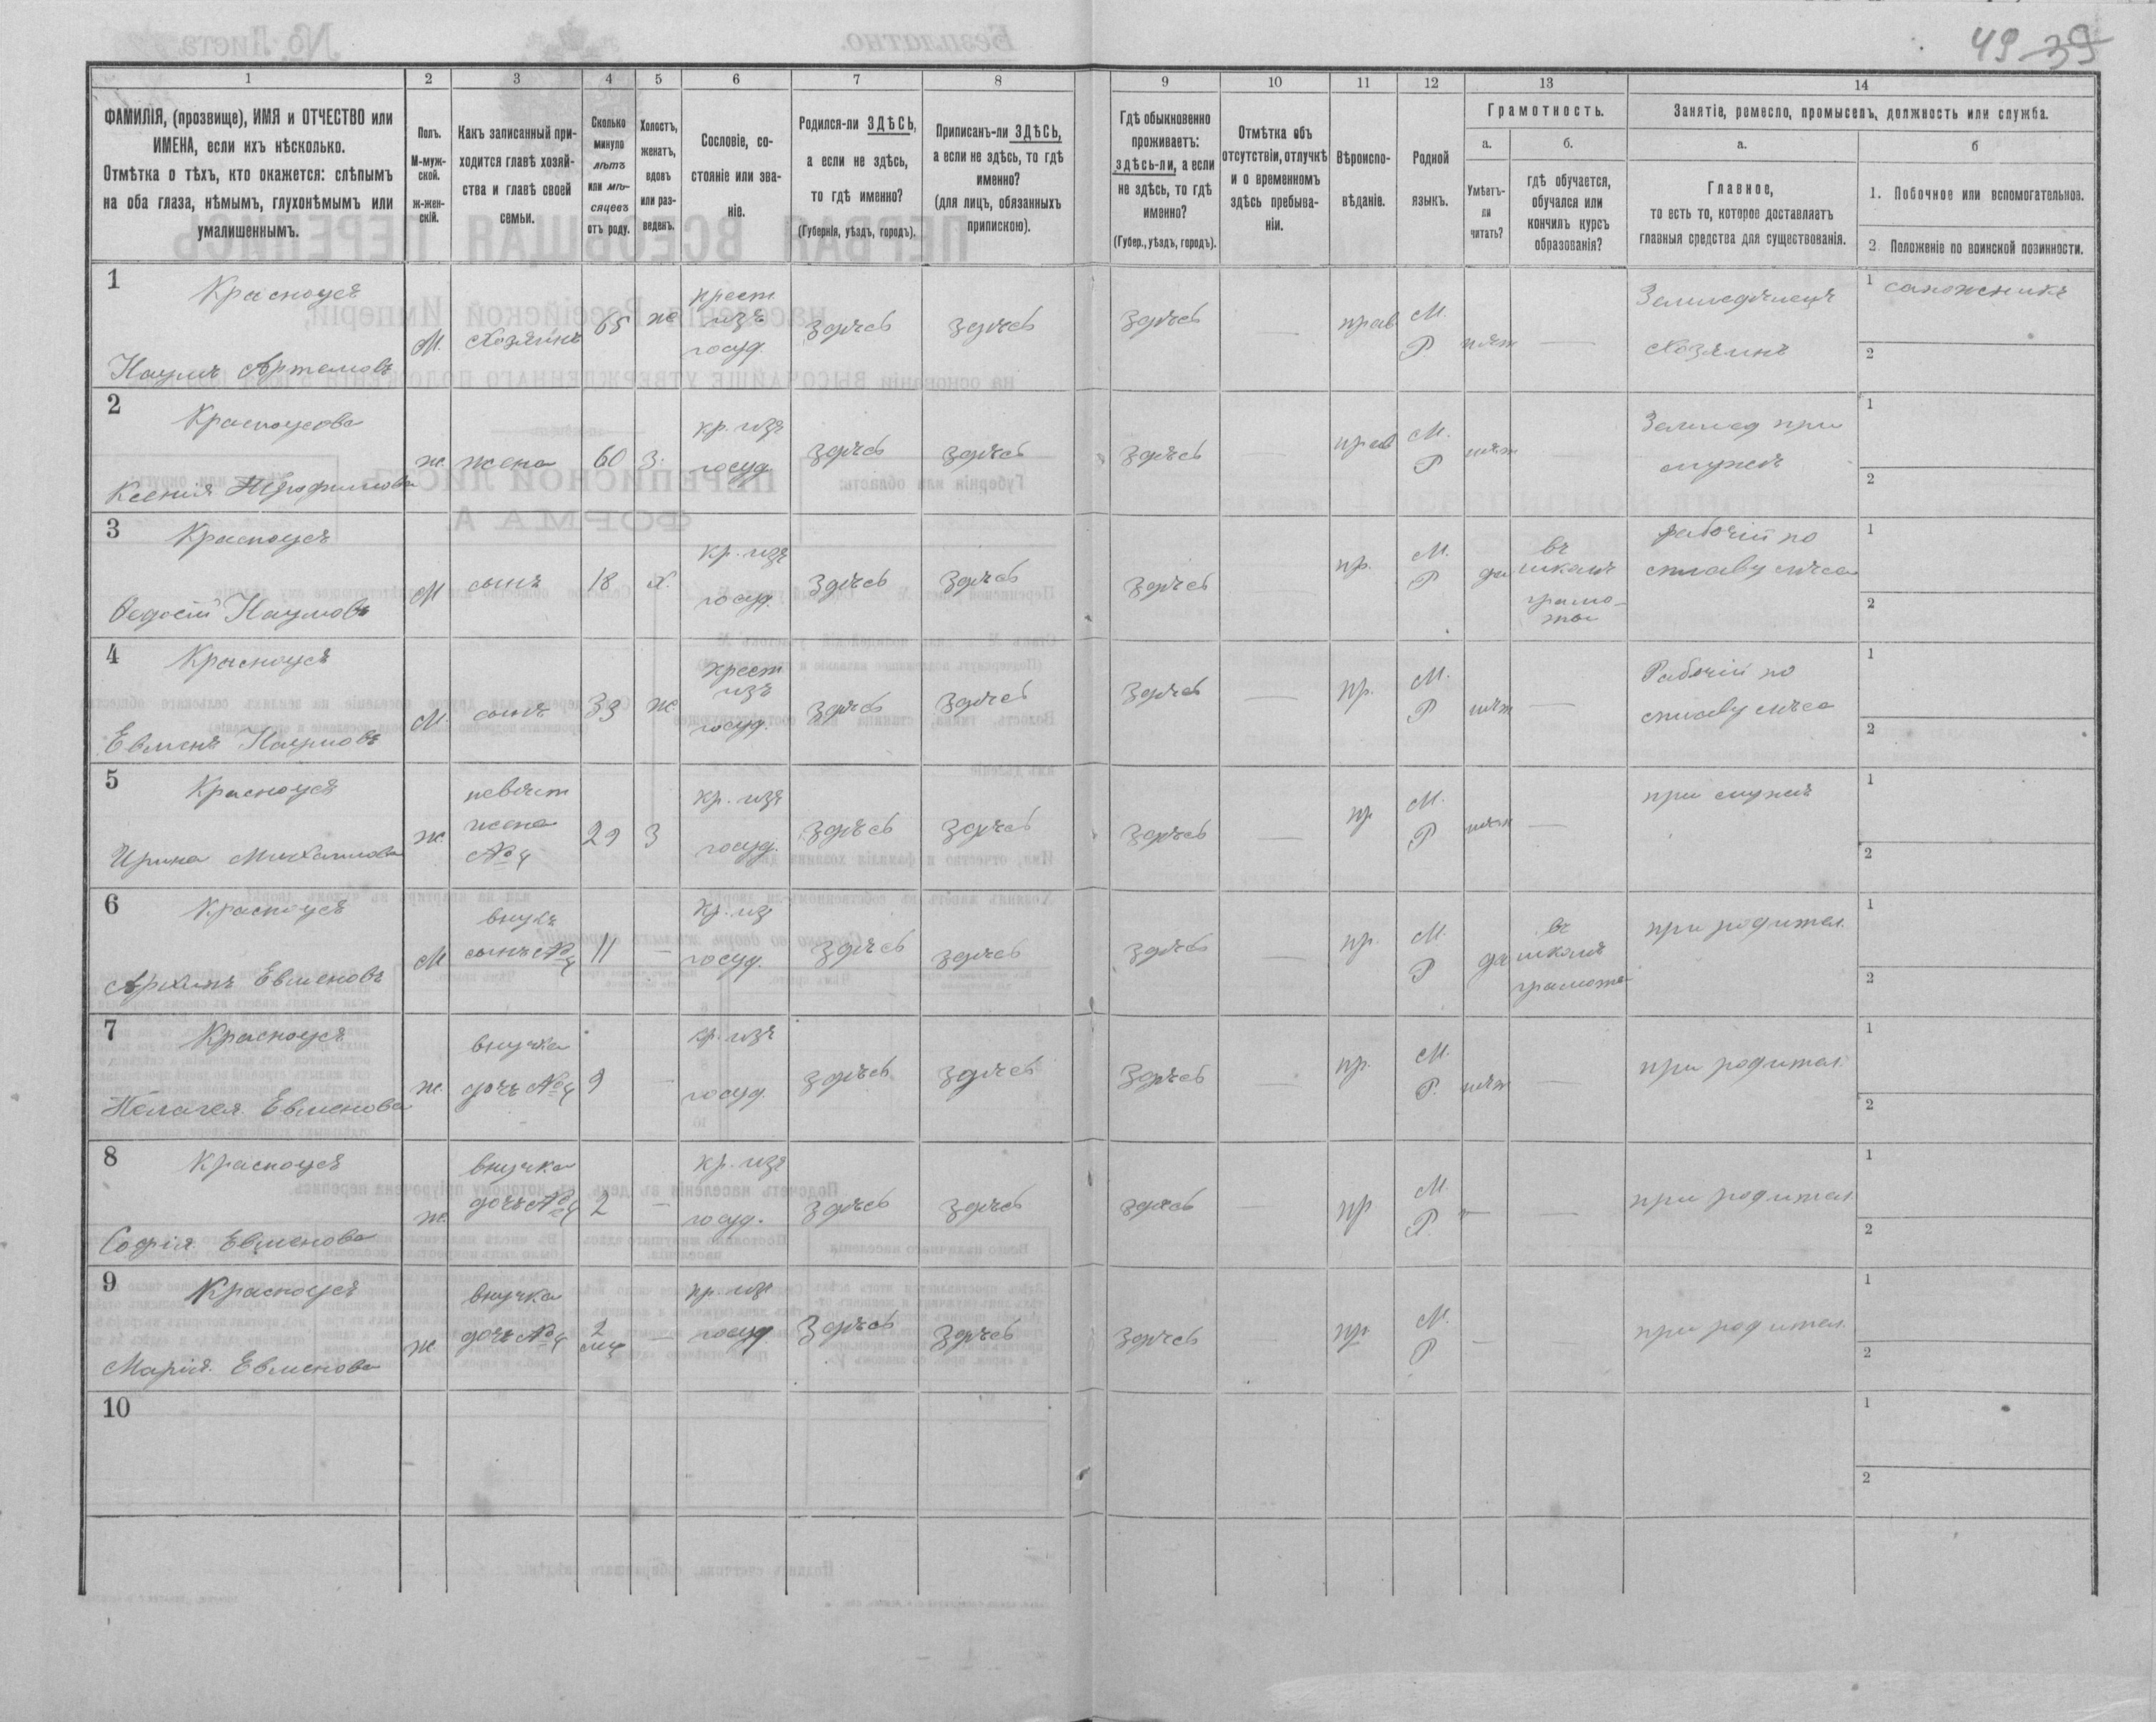 49 39
1 2 3 4 5 6 7 8 9 10 11 12 13 14
ФАМИЛІЯ, (прозвище), ИМЯ и ОТЧЕСТВО или
ИМЕНА, если ихъ нѣсколько.
Отмѣтка о тѣхъ, кто окажется: слѣпымъ
на оба глаза, нѣмымъ, глухонѣмымъ или
умалишеннымъ.
Полъ.
М-муж-
ской.
ж-жен-
скій.
Какъ записанный при-
ходится главѣ хозяй-
ства и главѣ своей
семьи.
Сколько
минуло
лѣтъ
или мѣ-
сяцевъ
отъ роду.
Холостъ,
женатъ,
вдовъ
или раз-
веденъ.
Сословіе, со-
стояніе или зва-
ніе.
Родился-ли ЗДѢСЬ,
а если не здѣсь,
то гдѣ именно?
(Губернія, уѣздъ, городъ).
Приписанъ-ли ЗДѢСЬ,
а если не здѣсь, то гдѣ
именно?
(для лицъ, обязанныхъ
припискою).
Гдѣ обыкновенно
проживаетъ:
здѣсь-ли, а если
не здѣсь, то гдѣ
именно?
(Губер., уѣздъ, городъ).
Отмѣтка объ
отсутствіи, отлучкѣ
и о временномъ
здѣсь пребыва-
ніи.
Вѣроиспо-
вѣданіе.
Родной
языкъ.
Грамотность.
а.
Умѣетъ-
ли
читать?
б.
гдѣ обучается,
обучался или
кончилъ курсъ
образованія?
Занятіе, ремесло, промыселъ, должность или служба.
а.
Главное,
то есть то, которое доставляетъ
главныя средства для существованія.
б
1. Побочное или вспомогательное.
2. Положеніе по воинской повинности.
1
Красноусъ
Наумъ Артемовъ
М.
Хозяинъ
65
же
крест
изъ
госуд.
здѣсь
здѣсь
здѣсь
—
прав
М.
Р
нѣт
—
Земледѣлецъ
Хозяинъ
1 сапожникъ
2
2
Красноусова
Ксения
ж.
жена
60
з.
кр. изъ
госуд.
здѣсь
здѣсь
здѣсь
—
прав
М.
Р
нѣт
—
Землед при
мужѣ
1
2
3
Красноусъ
Ѳедосій Наумовъ
М
сынъ
18
х.
кр. изъ
госуд.
здѣсь
здѣсь
здѣсь
—
пр.
М.
Р
да
въ
школѣ
грамо-
ты
рабочій по
сплаву лѣса
1
2
4
Красноусъ
Евменъ Наумовъ
М.
сынъ
33
ж
крест
изъ
госуд.
здѣсь
здѣсь
здѣсь
—
пр.
М.
Р
нѣт
—
Рабочій по
сплаву лѣса
1
2
5
Красноусъ
Ирина Михаилова
ж
невѣст
жена
№ 4
29
З
кр. изъ
госуд.
здѣсь
здѣсь
здѣсь
—
пр
М.
Р
нѣт
—
при мужѣ
1
2
6
Красноусъ
Архипъ Евменовъ
М
внукъ
сынъ № 4
11
—
кр. из
госуд.
здѣсь
здѣсь
здѣсь
—
пр.
М.
Р
да
въ
школѣ
грамоты
при родител.
1
2
7
Красноусъ
Пелагея Евменова
ж.
внучка
дочь № 4
9
—
кр. изъ
госуд.
здѣсь
здѣсь
здѣсь
—
пр.
М.
Р.
нѣт
—
при родител.
1
2
8
Красноусъ
Софія Евменова
ж
внучка
дочь № 4
2
—
кр. изъ
госуд.
здѣсь
здѣсь
здѣсь
—
пр
М.
Р.
—
—
при родител
1
2
9
Красноусъ
Марія Евменова
ж
внучка
дочь № 4
2
мц
—
кр. изъ
госуд
здѣсь
здѣсь
здѣсь
—
пр.
М.
Р
—
—
при родител.
1
2
10
1
2